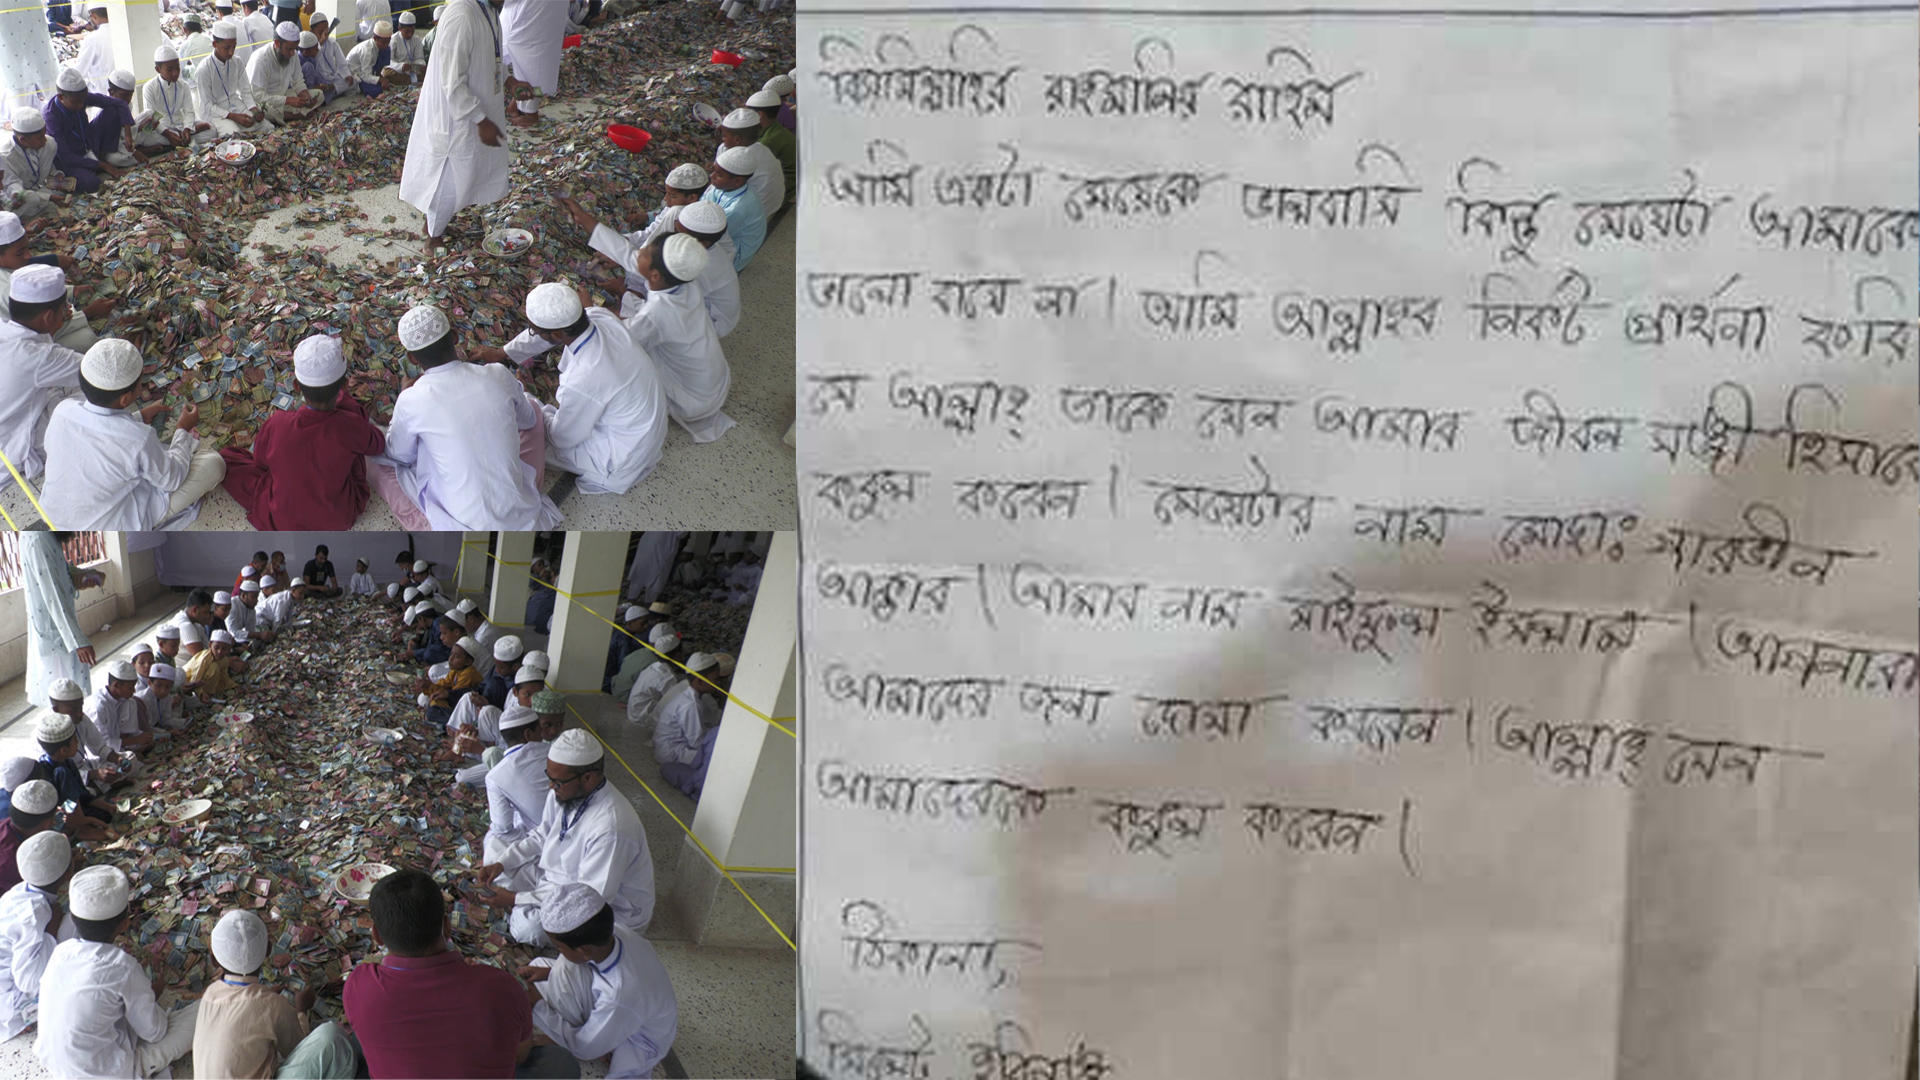 বিসমিল্লাহির রাহমানির রাহিম
আমি একটা মেয়েকে ভালবাসি কিন্তু মেয়েটা আমাকে
ভালো বাসে না। আমি আল্লাহর নিকট প্রার্থনা করি
যে আল্লাহ্ তাকে যেন আমার জীবন সঙ্গী হিসাবে
কবুল করেন। মেয়েটার নাম মোছাঃ পারভীন
আক্তার। আমার নাম সাইফুল ইসলাম। আপনারা
আমাদের জন্য দোয়া করবেন। আল্লাহ্ যেন
আমাদেরকে কবুল করেন।
ঠিকানা,
সিলেট হবিগঞ্জ